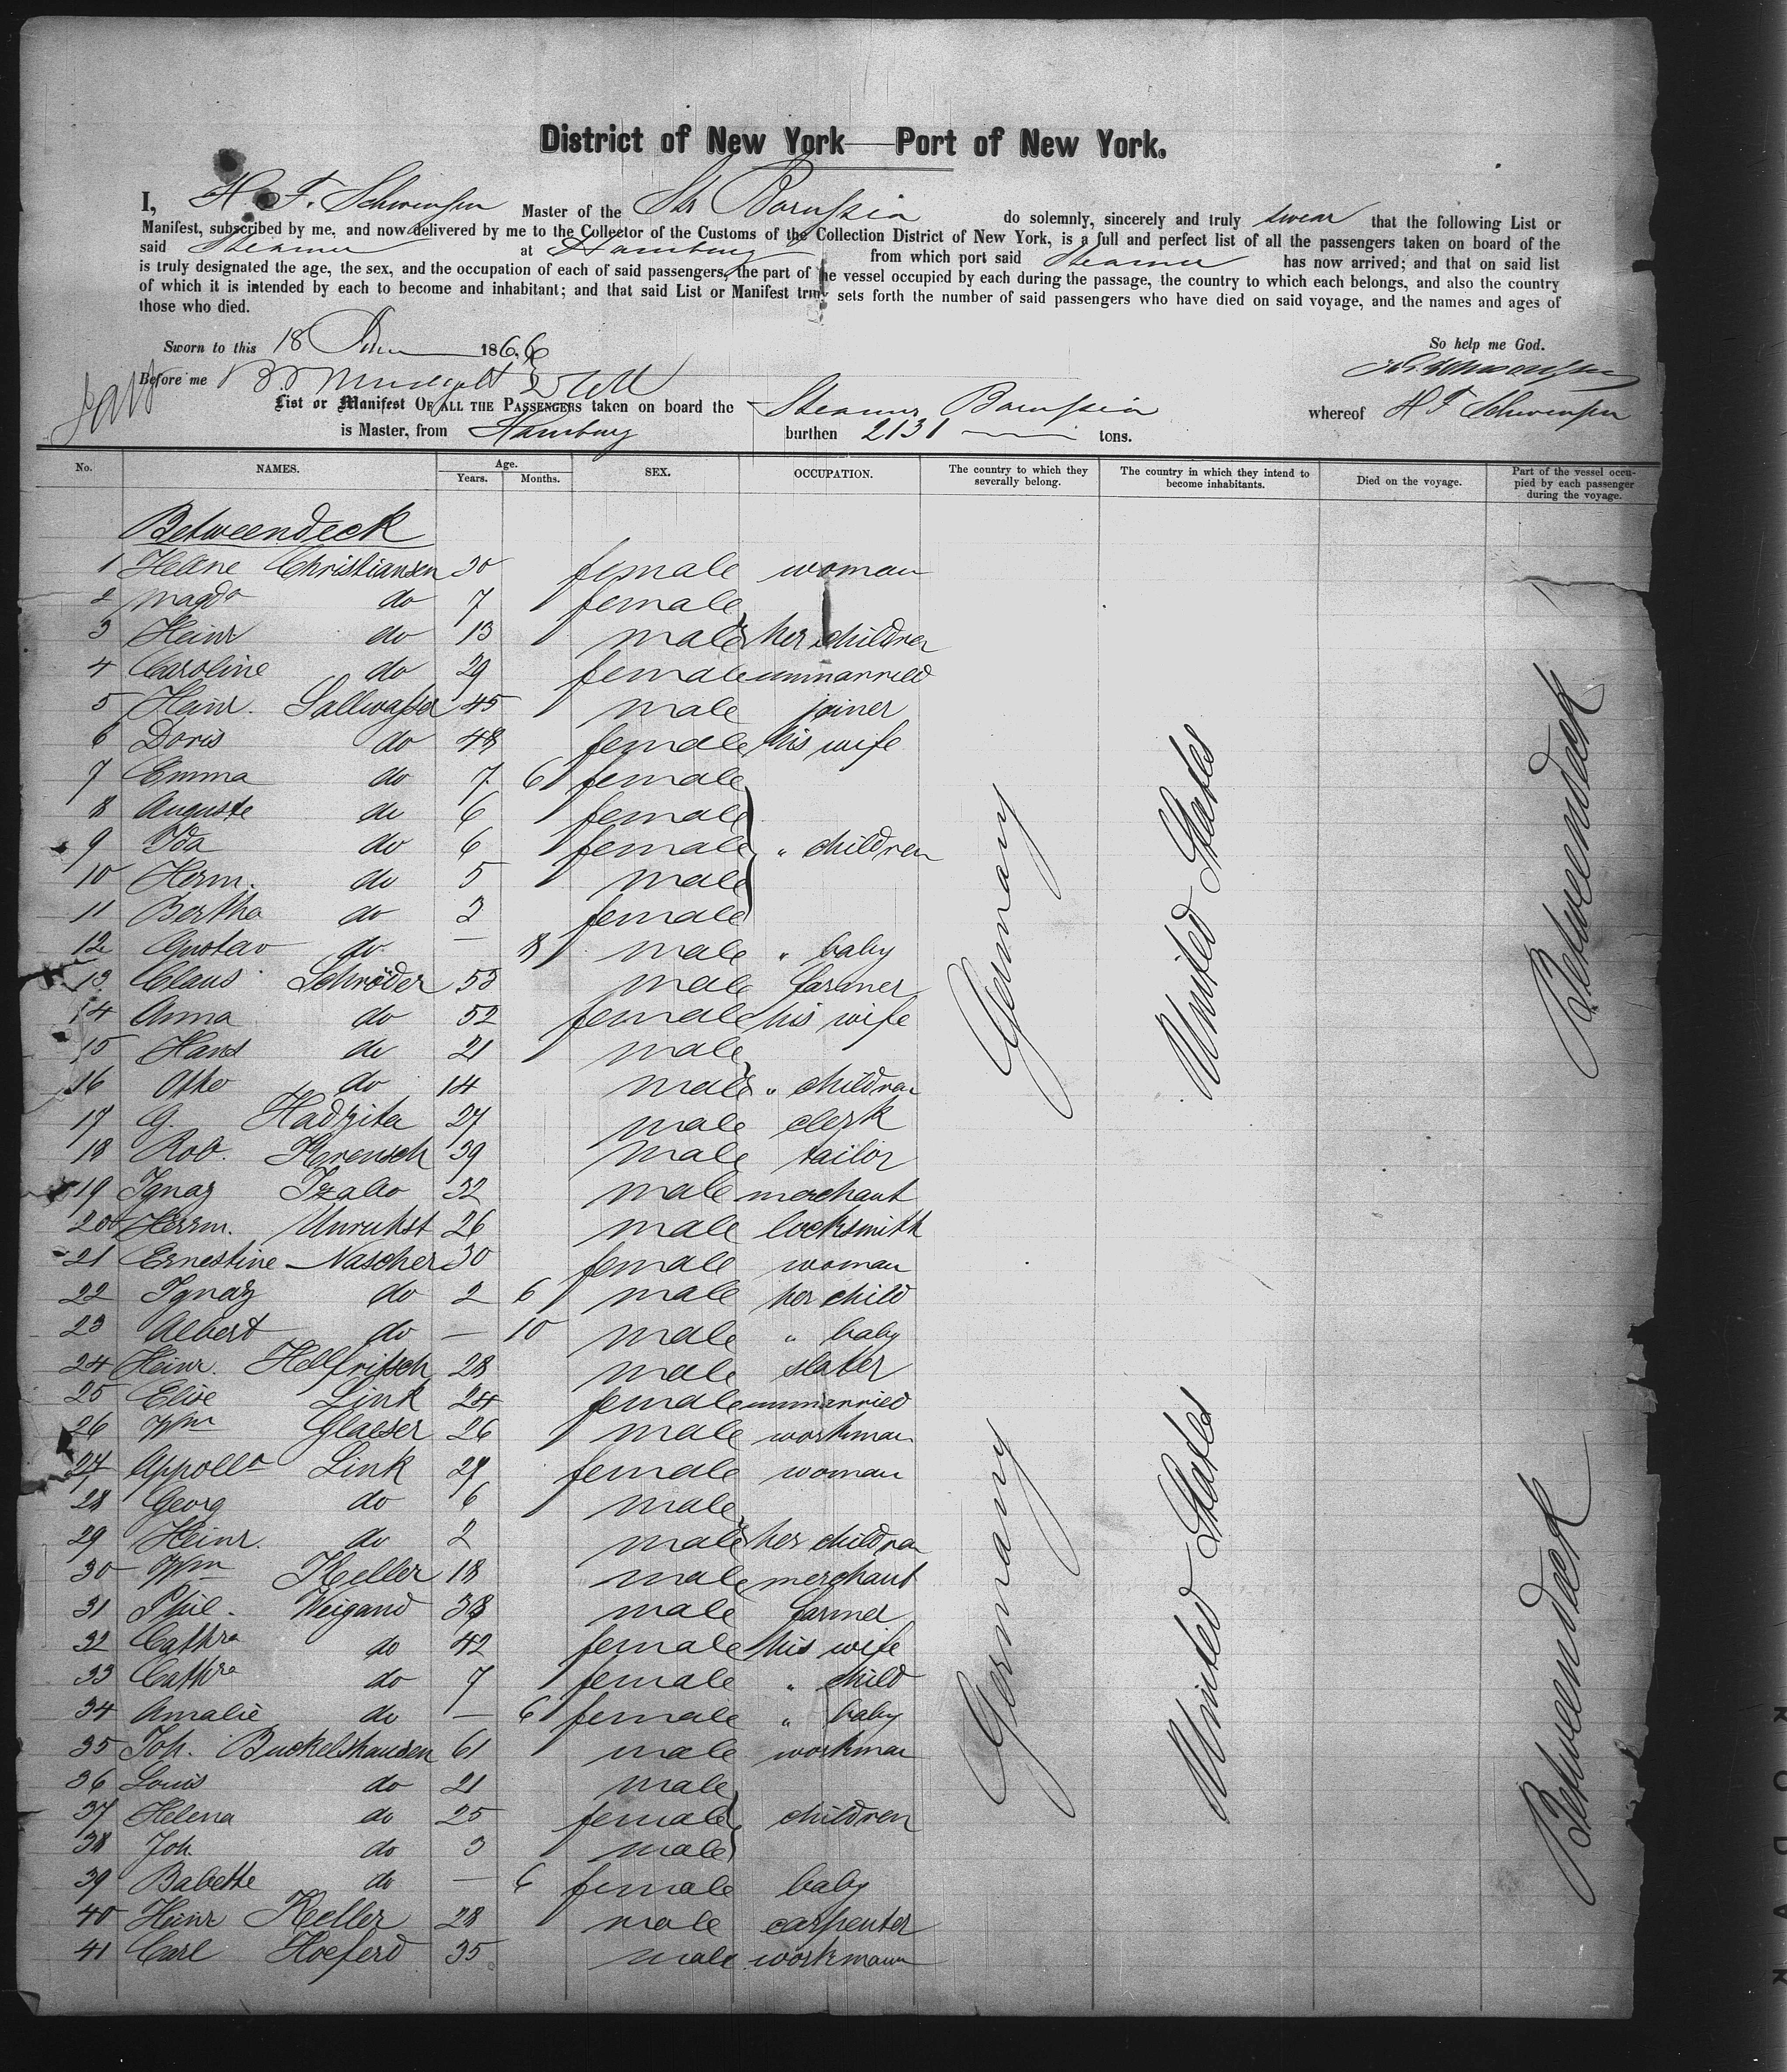 District of New York — Port of New York.
I, H. F. Schwensen Master of the Str Borussia do solemnly, sincerely and truly swear that the following List or
Manifest, subscribed by me, and now delivered by me to the Collector of the Customs of the Collection District of New York, is a full and perfect list of all the passengers taken on board of the
said Steamer at Hamburg from which port said Steamer has now arrived; and that on said list
is truly designated the age, the sex, and the occupation of each of said passengers, the part of the vessel occupied by each during the passage, the country to which each belongs, and also the country
of which it is intended by each to become and inhabitant; and that said List or Manifest truly sets forth the number of said passengers who have died on said voyage, and the names and ages of
those who died.
So help me God.
Sworn to this 18 June 1866
Before me
List or Manifest OF ALL THE PASSENGERS taken on board the Steamer Borussia whereof H F Schwensen
is Master, from Hamburg burthen 2131 tons.
No. NAMES. Age. Years. Months. SEX. OCCUPATION. The country to which they severally belong. The country in which they intend to become inhabitants. Died on the voyage. Part of the vessel occupied by each passenger during the voyage.
Betweendeck
1 Helene Christiansen 30 female woman
2 Magda do 7 female
3 Heinr do 13 male her children
4 Caroline do 29 female unmarried
5 Heinr. Sallwasser 45 male joiner
6 Doris do 48 female his wife
7 Emma do 7 6 female
8 Auguste do 6 female
9 Ida do 6 female " children
10 Herm. do 5 male
11 Bertha do 2 female
12 Gustav do — 8 male " baby
13 Claus Schröder 53 male farmer
14 Anna do 52 female his wife
15 Hans do 21 male
16 Otto do 14 male " children
17 G. Hadzita 27 male clerk
18 Rob. Krensch 39 male tailor
19 Ignaz Izabo 32 male merchant
20 Herrm. Unruhst 26 male locksmith
21 Ernestine Nascher 30 female woman
22 Ignaz do 2 6 male her child
23 Albert do — 10 male " baby
24 Heinr. Hellfritsch 28 male slater
25 Elise Link 24 female unmarried
26 Wm Glaeser 26 male workman
27 Appolla Link 29 female woman
28 Georg do 6 male
29 Heinr. do 2 male her children
30 Wm Keller 18 male merchant
31 Phil. Weigand 38 male farmer
32 Cathra do 42 female his wife
33 Cathra do 7 female " child
34 Amalie do — 6 female " baby
35 Joh. Buckelshausen 61 male workman
36 Louis do 21 male
37 Helena do 25 female children
38 Joh. do 3 male
39 Babette do — 6 female baby
40 Heinr Keller 28 male carpenter
41 Carl Hoeferd 35 male workmann
Germany
United States
Betweendeck
Germany
United States
Betweendeck
KODAK